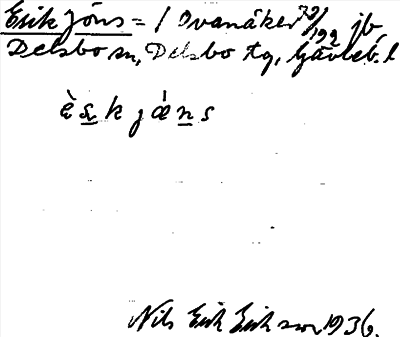 Erik Jöns = / Svanåker 30/192 jb,
Delsbo sn, Delsbo tg, Gävleb. l
è s k j ǿ n s
Nils Erik Eriksson 1936.